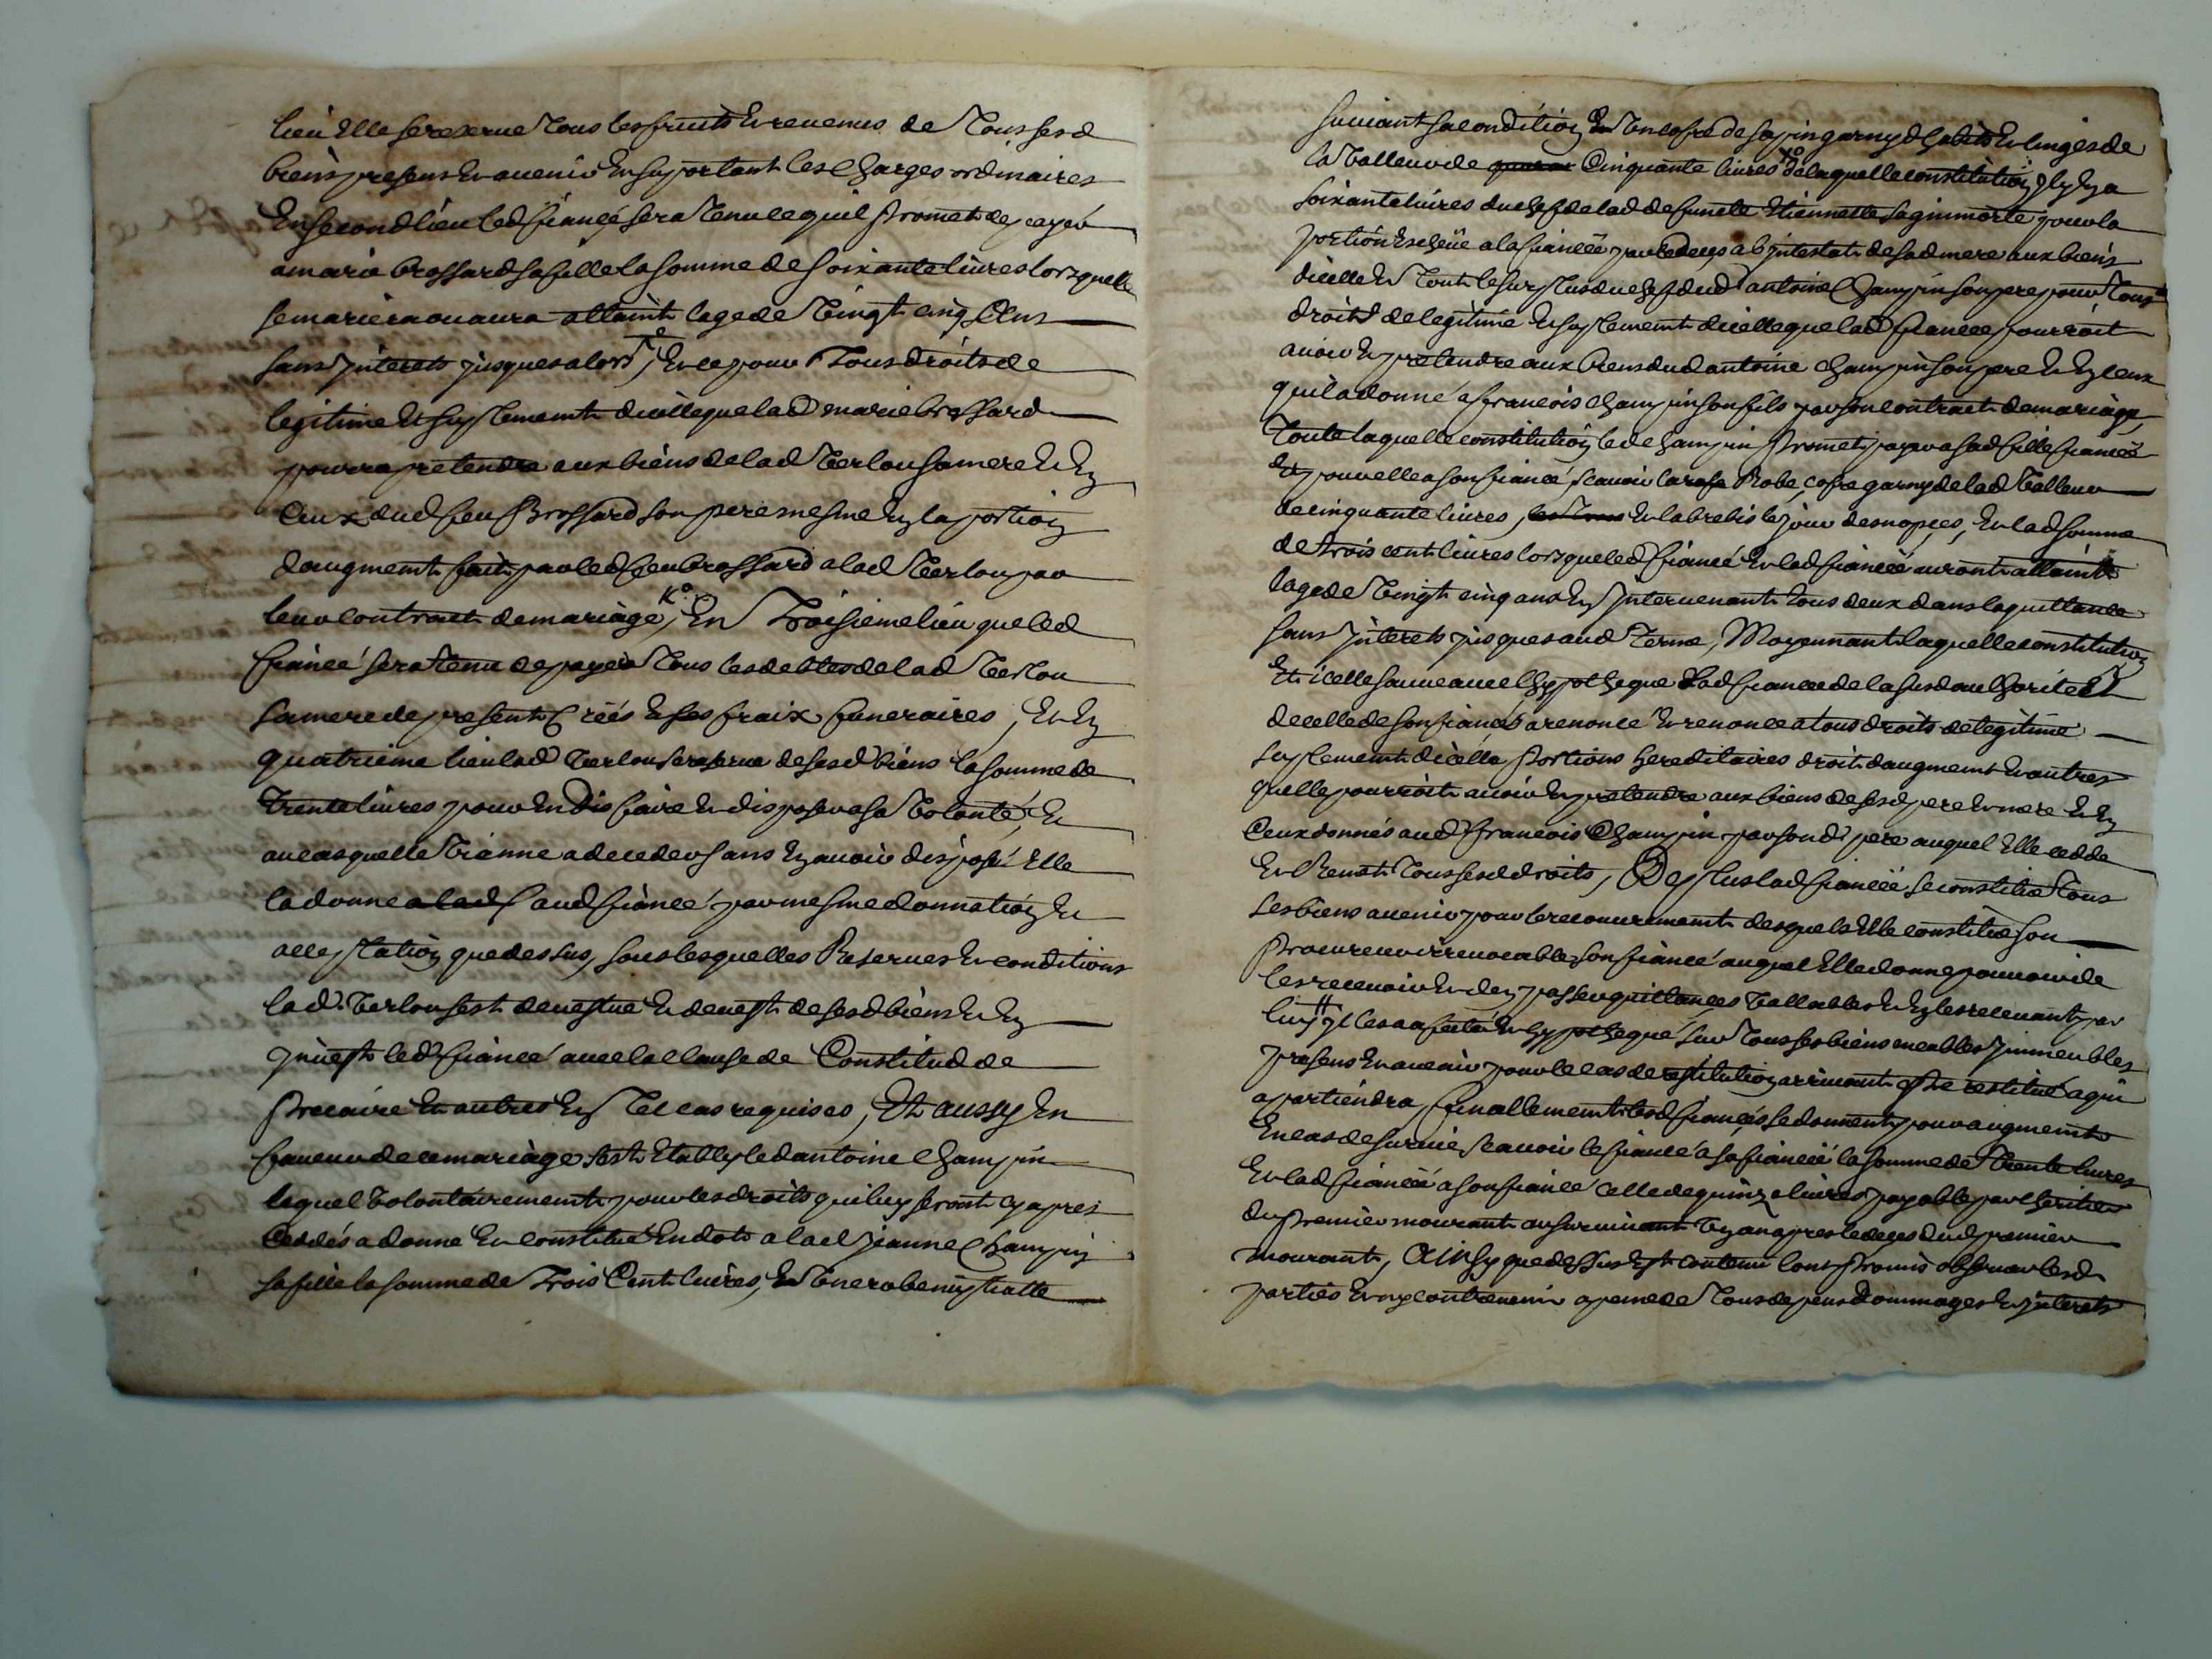 lieu Elle se reserue Tous les fruits Et reuenus de Tous sesd
biens presens Et auenir En suportant les Charges ordinaires
En second lieu led fiancé sera Tenu ce quil promet de payer
a marie Brossard sa fille la somme de soixante liures lorsquelle
se mariera ou aura attaint lage de Vingt cinq Ans
sans jnterets jusques alors, Et ce pour Tous droits de
legitime Et suplement dicelle que lad marie brossard
pourra pretendre aux biens de lad Terlou sa mere Et En
Ceux dud feu Brossard son pere mesme En la portion
daugment fait par led feu brossard a lad Terlou par
leur Contract de mariage, Ko En Troisieme lieu que led
fiancé sera Tenu de payer Tous les debtes de lad Terlou
sa mere de present Créés Et ses fraix funeraires, Et En
quatrieme lieu lad Terlou se reserue de sesd biens la somme de
Trente liures pour En faire Et disposer a sa Volonté, Et
au cas quelle Vienne a deceder sans En auoir disposé Elle
la donne a lad aud fiancé par mesme donnation Et
acceptation que dessus, sous lesquelles Reserues Et conditions
lad Terlou sest deuestue Et deuest de sesd biens Et En
jnuest led fiancé auec la clause de Constitud de
precaire Et autres En Tel cas requises, Et aussy En
faueur de ce mariage sest Etably led antoine Champin
lequel Volontairement pour les droits qui luy seront cy apres
Ceddés a donné Et Constitué En dot a lad jeanne Champin
sa fille la somme de Trois Cent liures, Et Vne robe nuptialle
suiuant sa condition Et Vn cofre de sapin garny dhabits Et linges de
la Valleur de Cinquante liures Xo de laquelle constitution jl y En a
soixante liures du chef de lad defuncte Etiennette sagin morte pour la
portion Escheüe a la fiancée par le deces ab jntestat de sad mere aux biens
dicelle Et Tout le surplus du chef dud antoine Champin son pere pour Tous
droits de legitime Et suplement dicelle que lad fiancée pourroit
auoir Et pretendre aux biens dud antoine Champin son pere Et En ceux
quil a donné a francois Champin son fils par son contract de mariage,
Toute laquelle constitution led Champin promet payer a sad fille fiancée
Et pour elle a son fiancé, scauoir la Robe, cofre garny de lad Valleur
de cinquante liures, Et la brebis le jour des nopces, Et lad somme
de trois cent liures lorsque led fiancé Et lad fiancée auront attaint
lage de Vingt cinq ans En jnteruenant Tous deux dans la quittance
sans jnterets jusques aud Terme, Moyennant laquelle constitution
Et icelle sauue auec lhypotheque lad fiancée de la susd authorité Et
de celle de son fiancé a renoncé Et renonce a tous droits de legitime
suplement dicelle, portions hereditaires droit daugment Et autres
quelle pourroit auoir Et pretendre aux biens de sesd pere Et mere Et En
Ceux donnés aud francois Champin par sond pere auquel Elle cedde
Et Remet Tous sesd droits, De plus lad fiancée se constitue Tous
ses biens auenir pour le recouurement desquels Elle constitue son
procureur irreuocable son fiancé auquel Elle donne pouuoir de
les receuoir Et den passer quittances Vallables Et En les receuant par
luy jl les a afecté Et hypothequé sur Tous ses biens meubles jmmeubles
presens Et auenir pour le cas de restitution arriuant Estre restitué a qui
apartiendra, finallement lesd fiancés se donnent pour augment
En cas de suruie scauoir le fiancé a sa fiancée la somme de Trente liures
Et lad fiancée a son fiancé celle de quinze liures payable par lheritier
du premier mourant au suruiuant Vn an apres le deces dud premier
mourant, Ainsy que dessus Est contenu lont promis obseruer lesd
parties Et ny contreuenir a peine de Tous depens dommages Et jnterets